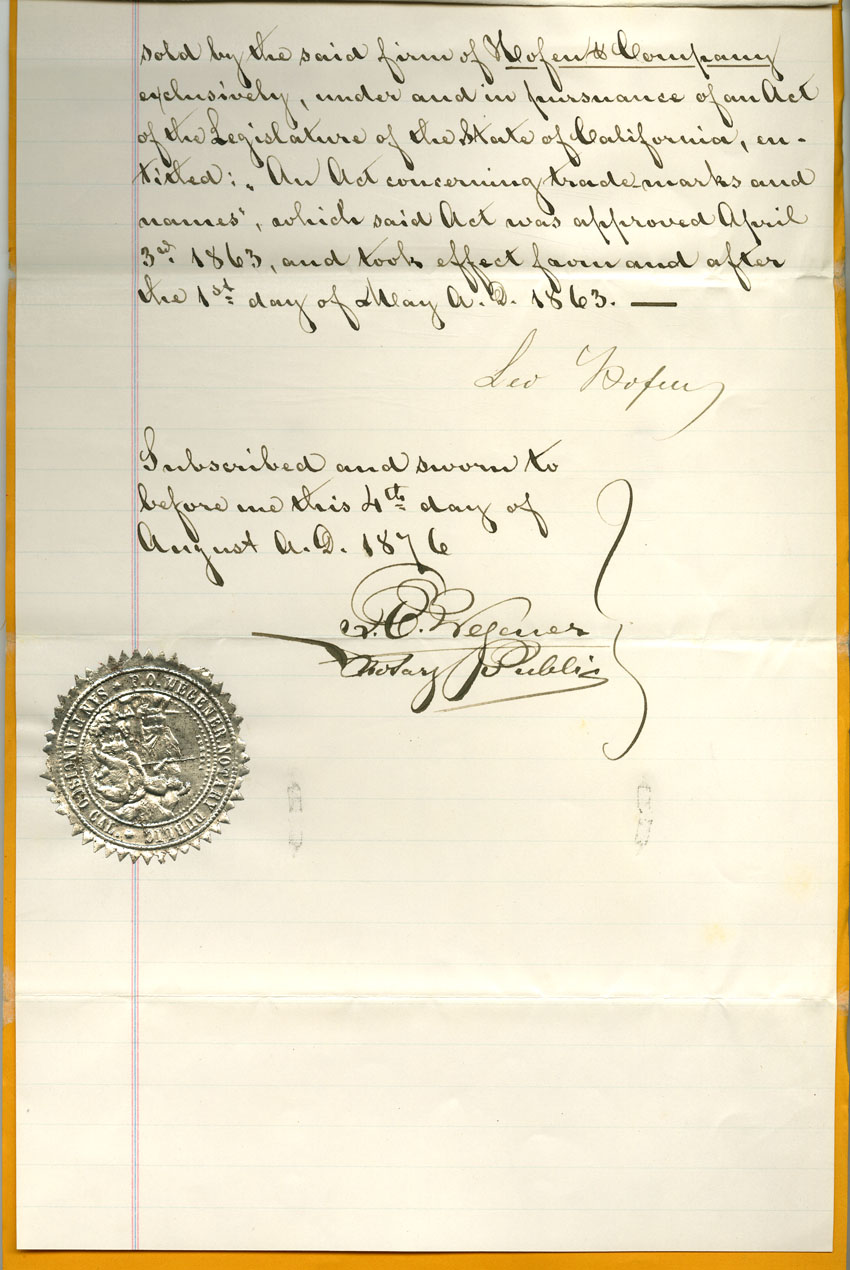 sold by the said firm of Hofen & Company
exclusively, under and in pursuance of an Act
of the Legislature of the State of California, en-
titled: „An Act concerning trade-marks and
names", which said Act was approved April
3rd. 1863, and took effect from and after
the 1st. day of May A. D. 1863. —
Leo Hofen
Subscribed and sworn to
before me this 4th day of
August A. D. 1876
F. O. Wegener
Notary Public
F. O. WEGENER NOTARY PUBLIC
SAN FRANCISCO CAL.